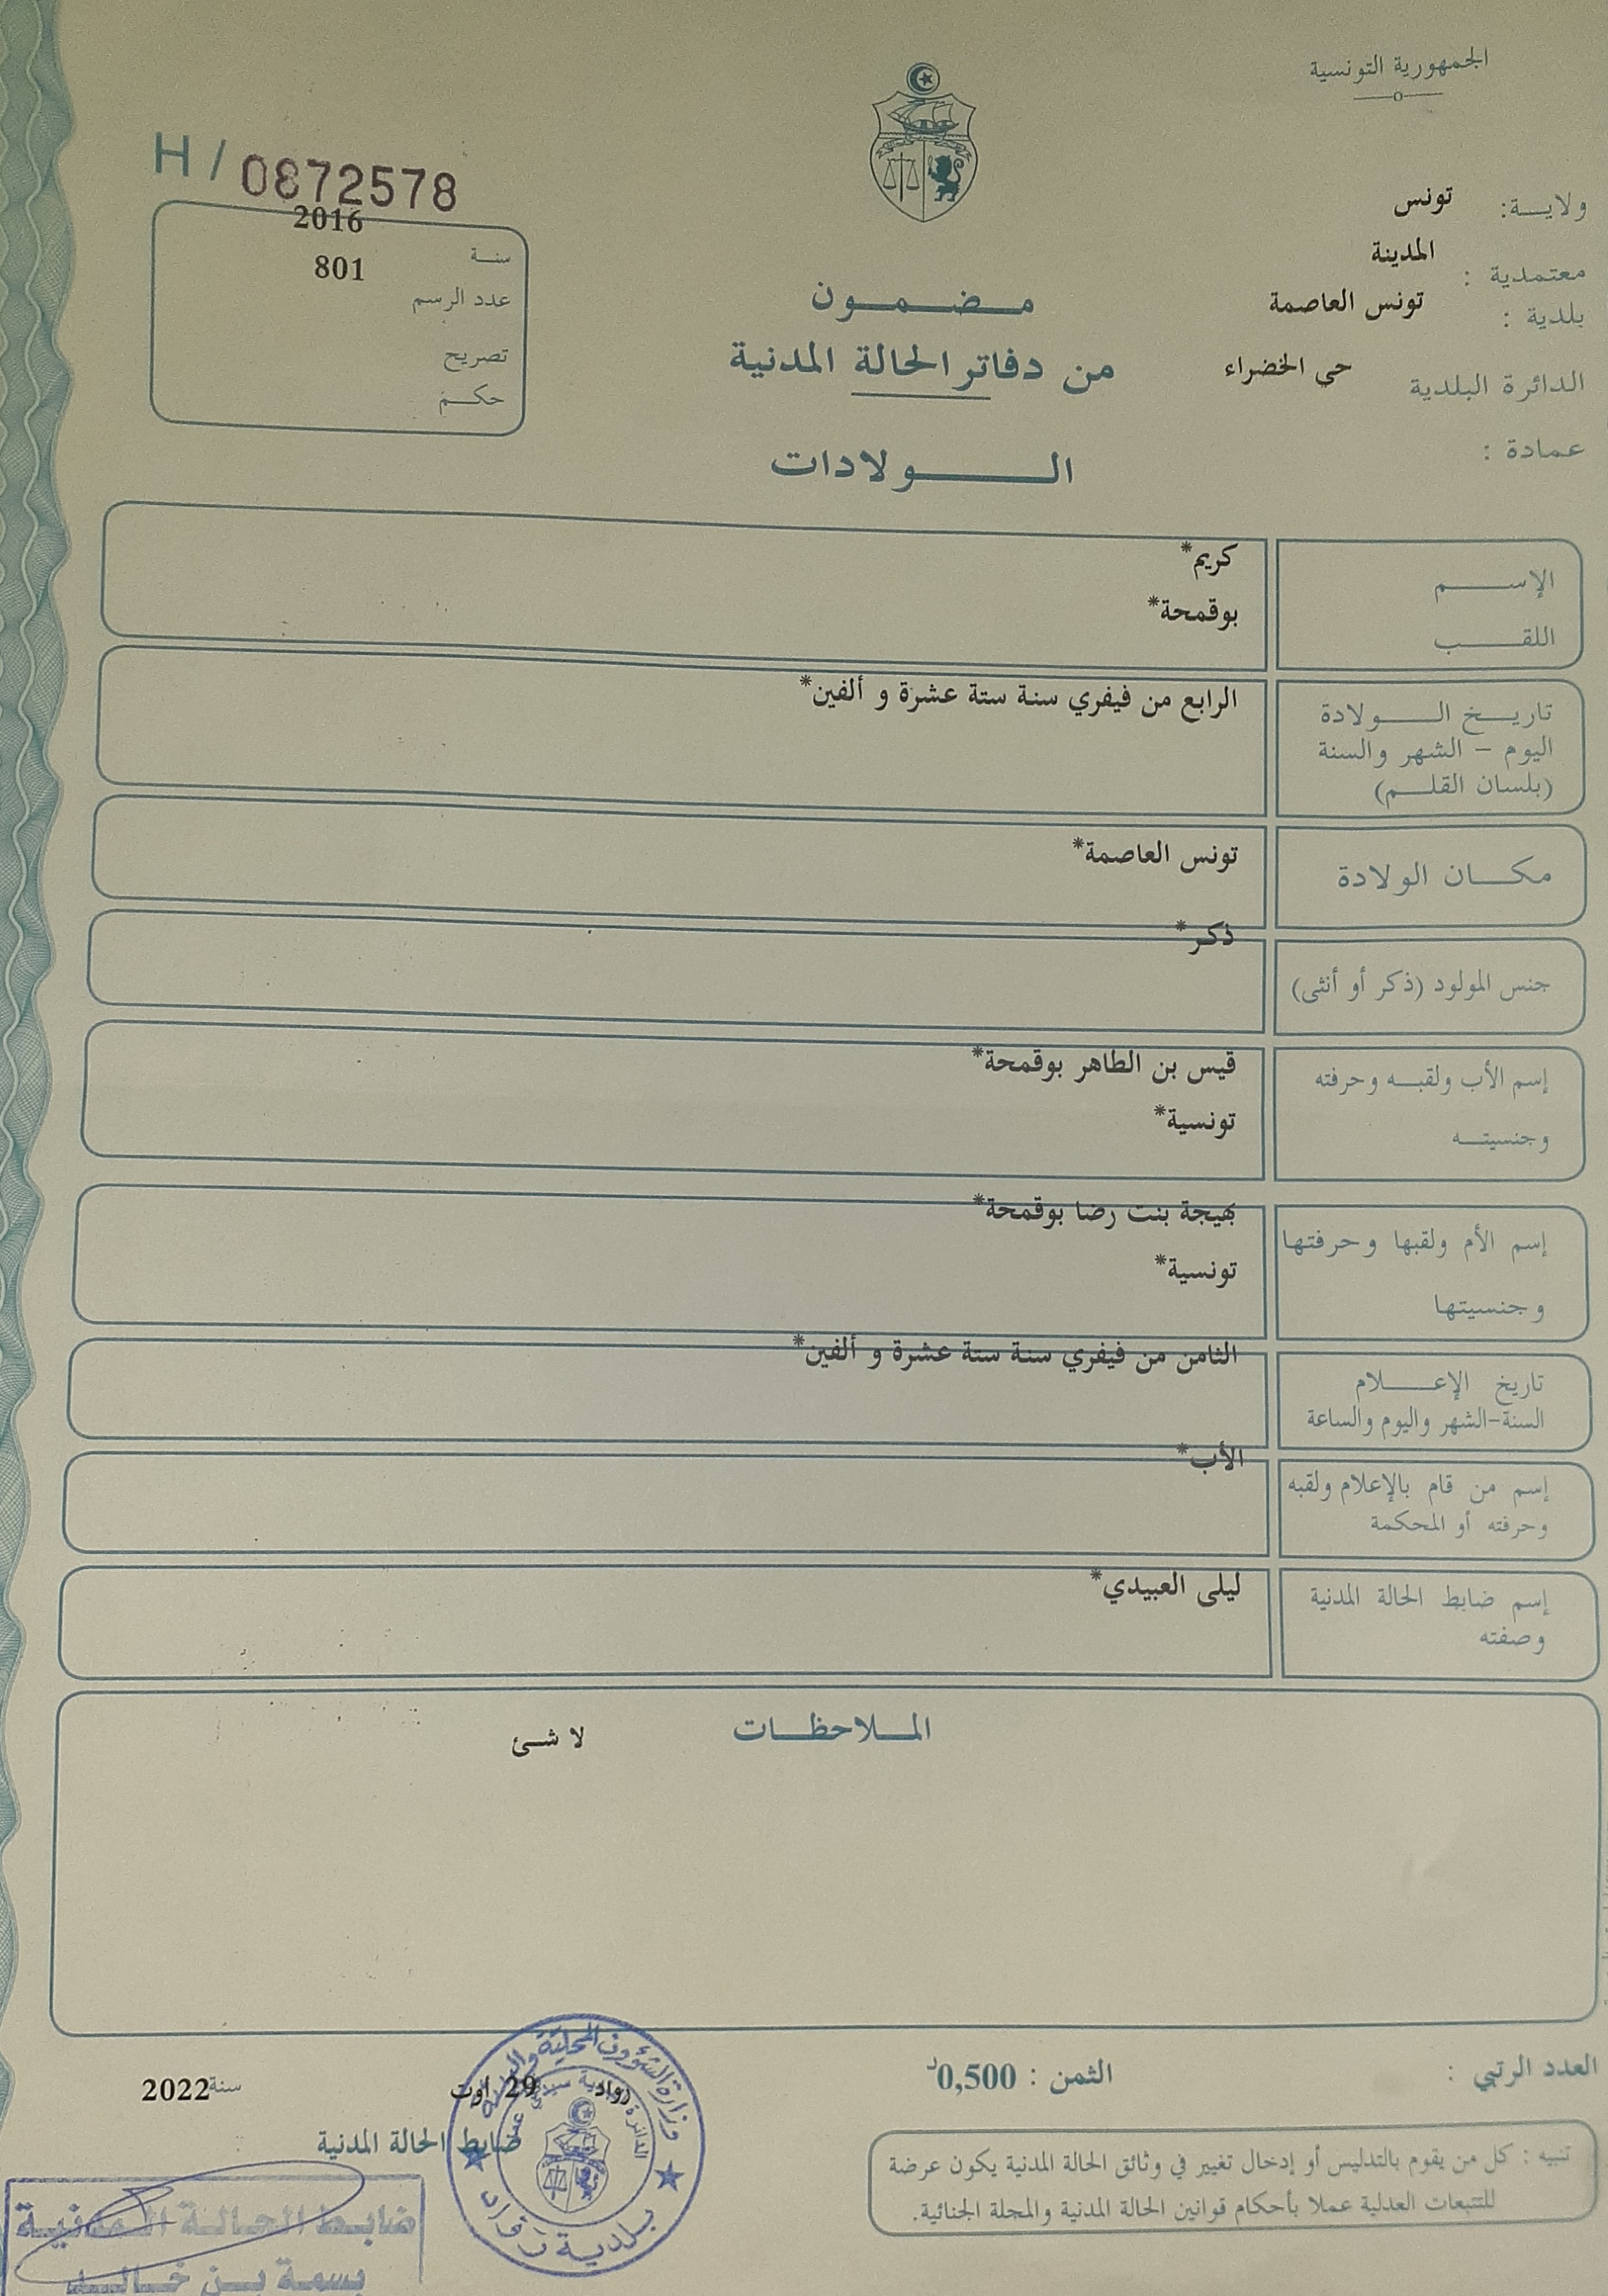 الجمهورية التونسية
H / 0872578
ولايـة: تونس
معتمدية : المدينة
بلدية : تونس العاصمة
الدائرة البلدية حي الخضراء
عمادة :
سنة 2016
عدد الرسم 801
تصريح
حكم
مضمون
من دفاتر الحالة المدنية
الولادات
الإسم كريم*
اللقب بوقمحة*
تاريخ الولادة الرابع من فيفري سنة ستة عشرة و ألفين*
اليوم - الشهر والسنة
(بلسان القلم)
مكان الولادة تونس العاصمة*
جنس المولود (ذكر أو أنثى) ذكر*
إسم الأب ولقبه وحرفته قيس بن الطاهر بوقمحة*
وجنسيته تونسية*
إسم الأم ولقبها وحرفتها بهيجة بنت رضا بوقمحة*
وجنسيتها تونسية*
تاريخ الإعلام الثامن من فيفري سنة ستة عشرة و ألفين*
السنة-الشهر واليوم والساعة
إسم من قام بالإعلام ولقبه الأب*
وحرفته أو المحكمة
إسم ضابط الحالة المدنية ليلى العبيدي*
وصفته
الملاحظات لا شئ
العدد الرتبي :
الثمن : 0,500د
رواد 29 اوت سنة 2022
ضابط الحالة المدنية
تنبيه : كل من يقوم بالتدليس أو إدخال تغيير في وثائق الحالة المدنية يكون عرضة
للتتبعات العدلية عملا بأحكام قوانين الحالة المدنية والمجلة الجنائية.
وزارة الشؤون المحلية
بلدية روّاد
ضابط الحالة المدنية
بسمة بن خالد